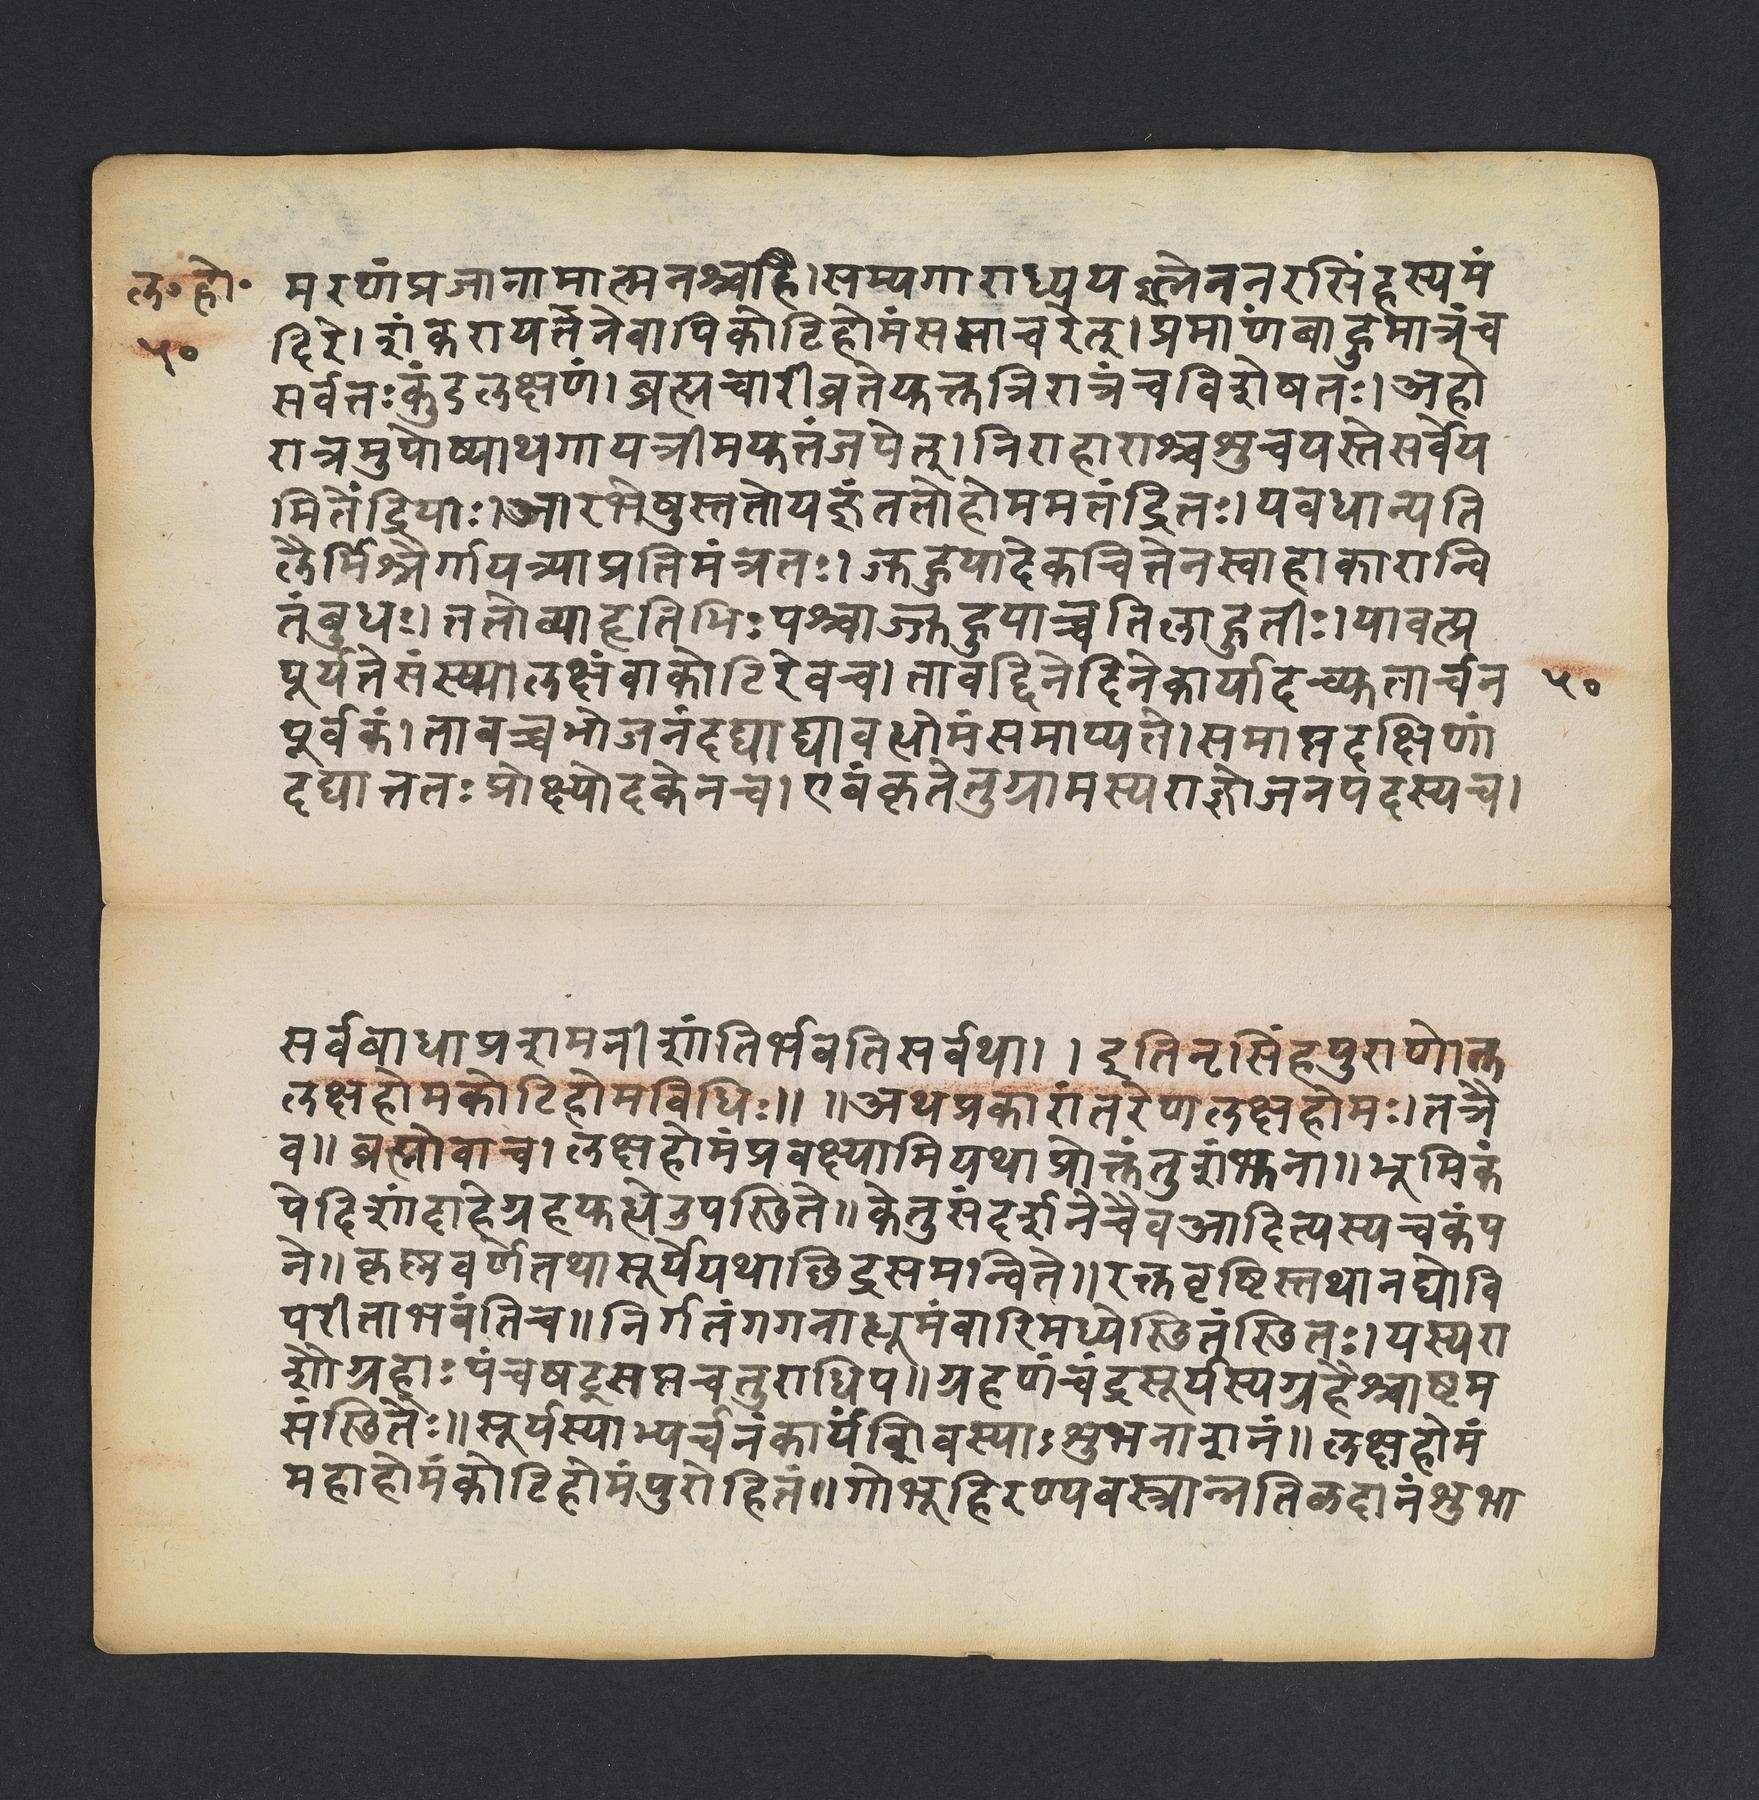 ल॰हो॰
५०
मरणंप्रजानामात्मनश्चहि।सम्यगाराध्ययत्नेननरसिंहस्यमं
दिरे।शंकरायतनेवापिकोटिहोमंसमाचरेत्।प्रमाणंबाहुमात्रंच
सर्वतःकुंडलक्षणं।ब्रह्मचारीव्रतेयुक्तत्रिरात्रंचविशेषतः।अहो
रात्रमुपोष्याथगायत्रीमयुतंजपेत्।निराहाराश्चशुचयस्तेसर्वेय
मितेंद्रियाः।आरभेषुस्ततोयज्ञंततोहोममतंद्रितः।यवधान्यति
लैर्मिश्रैर्गायत्र्याप्रतिमंत्रतः।जुहुयादेकचित्तेनस्वाहाकारान्वि
तंबुधः।ततोव्याहृतिभिःपश्चाज्जुहुयाच्चतिलाहुतीः।यावत्प्र
पूर्यतेसंख्यालक्षंवाकोटिरेवच।तावद्दिनेदिनेकार्यादच्युतार्चन
५०
पूर्वकं।तावच्चभोजनंदद्याद्यावद्धोमंसमाप्यते।समाप्तदक्षिणां
दद्यात्ततःप्रोक्ष्योदकेनच।एवंकृतेतुग्रामस्यराज्ञोजनपदस्यच।
सर्वबाधाप्रशमनीशांतिर्भवतिसर्वथा।।इतिनृसिंहपुराणोक्त
लक्षहोमकोटिहोमविधिः॥॥अथप्रकारांतरेणलक्षहोमः।तत्रै
व॥ब्रह्मोवाच।लक्षहोमंप्रवक्ष्यामियथाप्रोक्तंतुशंभुना॥भूमिकं
पेदिशांदाहेग्रहयुद्धेउपस्थिते॥केतुसंदर्शनेचैवआदित्यस्यचकंप
ने॥कृष्णवर्णेतथासूर्येयथाछिद्रसमन्विते॥रक्तवृष्टिस्तथानद्योवि
परीताभवंतिच॥निर्गतंगगनाद्धूमंवारिमध्येस्थितंस्थितः।यस्यरा
शौग्रहाःपंचषट्सप्तचतुराधिप॥ग्रहणंचंद्रसूर्यस्यग्रहैश्चाष्टम
संस्थितैः॥सूर्यस्याभ्यर्चनंकार्यंशिवस्याऽशुभनाशनं॥लक्षहोमं
महाहोमंकोटिहोमंपुरोहितं॥गोभूहिरण्यवस्त्रान्नतिलदानंशुभा